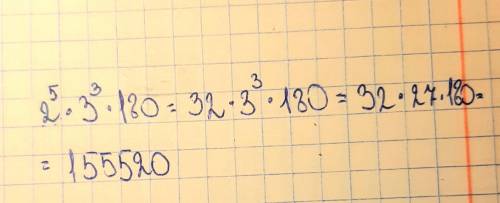 2⁵·3³·180=32·3³·180=32·27·180=
=155520